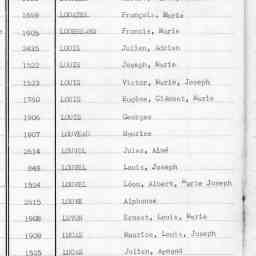 LOUAZEL François, Marie
1905 Francis, Marie
2435 LOUIS Julien, Adrien
1522 LOUIS Joseph, Marie
1523 LOUIS Victor, Marie, Joseph
1760 LOUIS Eugène, Clément, Marie
1906 LOUIS Georges
1907 LOUVEAU Maurice
2614 LOUVEL Jules, Aimé
848 LOUVEL Louis, Joseph
1524 LOUVEL Léon, Albert, Marie Joseph
2615 Alphonse
1908 LUTON Ernest, Louis, Marie
1909 LUCAS Maurice, Louis, Joseph
1525 LUCAS Julien, Armand